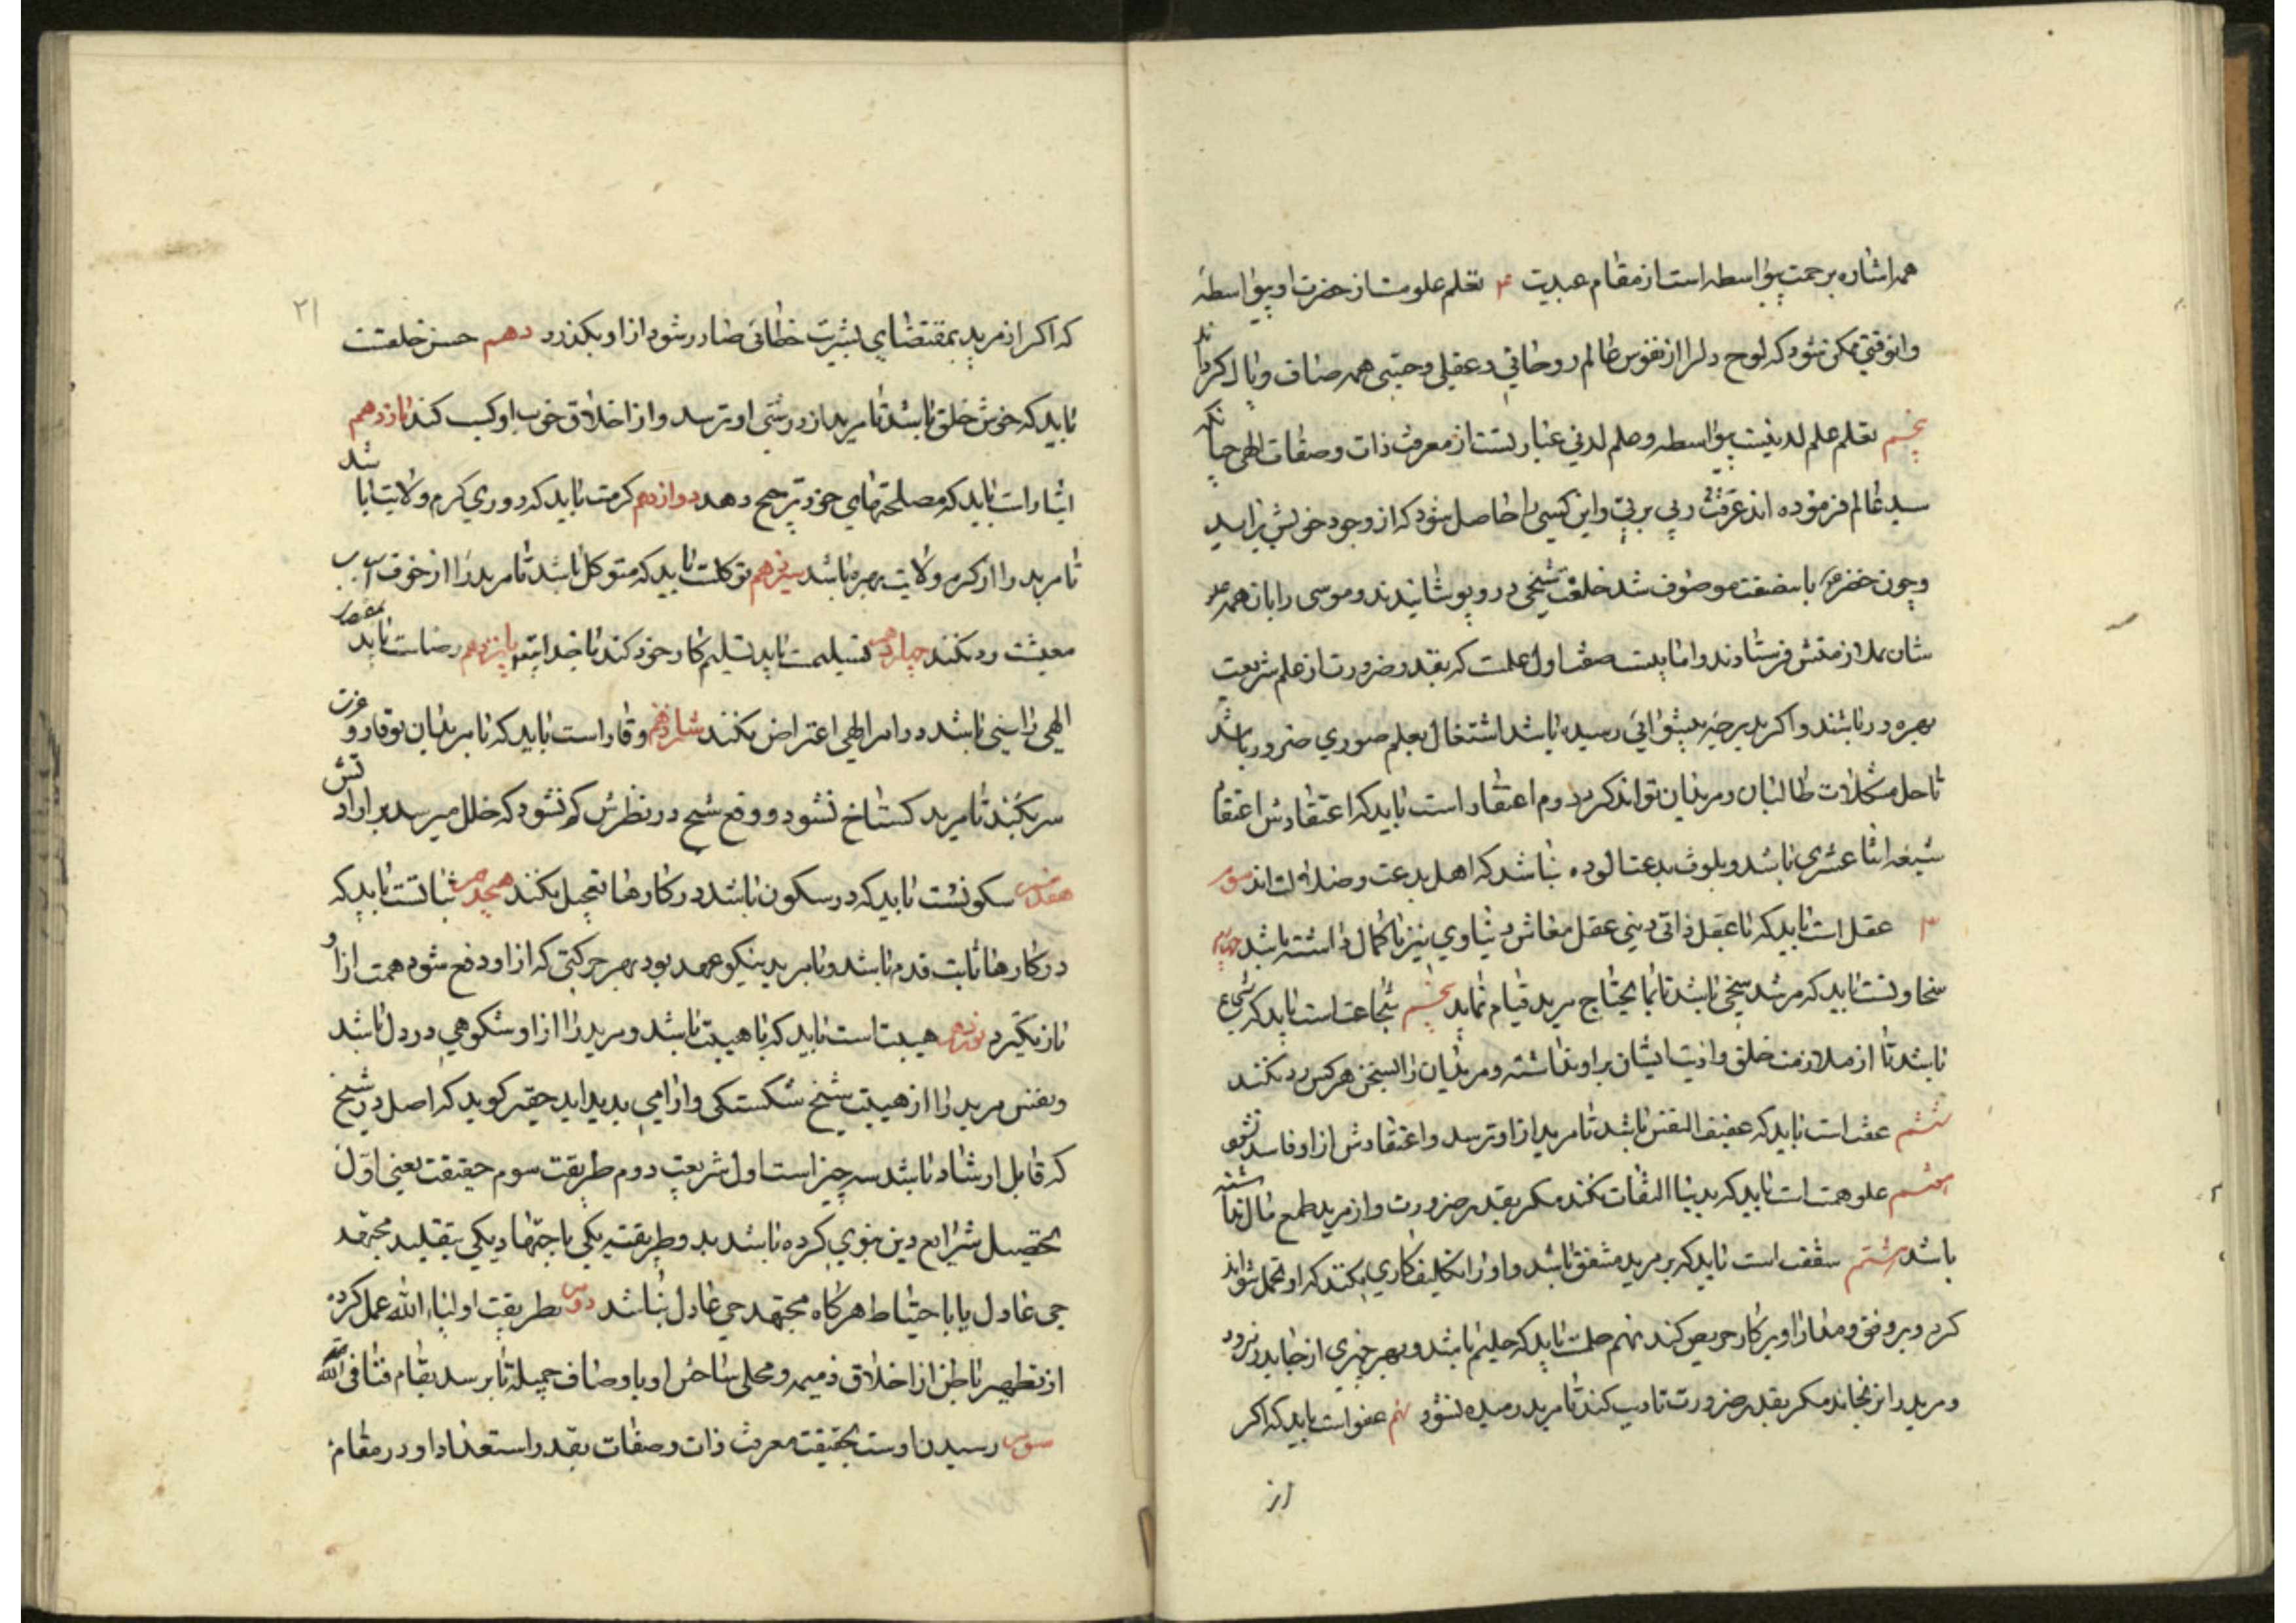 همه اشاره برحمت بیواسطه است از مقام عبدیت ۴ تعلم علومت از حضرت او بیواسطه
و این وقتی ممکن شود که لوح دلرا از نقوش عالم روحانی و عقلی و حسی همه صاف و پاک کرداند
پنجم تعلم علم لدنیست بیواسطه و علم لدنی عبارتست از معرفت ذات و صفات الهی چنانکه
سید عالم فرموده اند عرفت ربی بربی و این کسی را حاصل شود که از وجود خویش بزاید
و چون خضر باین صفت موصوف شد خلعت شیخی در و پوشانیدند و موسی را با آن همه
شان بملازمتش فرستادند و اما بیست صفت اول علمست که بقدر ضرورت از علم شریعت
بهره ور باشد و اکر بدرجه پیشوائی رسیده باشد اشتغال بعلم صوری ضرور باشد
تا حل مشکلات طالبان و مریدان تواند کرد دوم اعتقاد است باید که اعتقادش اعتقاد
شیعه اثنا عشری باشد و بلوث بدعت الوده نباشد که اهل بدعت و ضلالت اند سوم
۳ عقل است باید که با عقل ذاتی دینی عقل معاش دنیاوی نیز با کمال داشته باشد چهارم
سخاوتست باید که مرشد سخی باشد تا بما یحتاج مرید قیام نماید پنجم شجاعت است باید که شجاع
باشد تا از ملامت خلق و اذیت ایشان پروا نداشته و مریدان را بسخن هر کس رد نکند
ششم عفت است باید که عفیف النفس باشد تا مرید از او نرسد و اعتقادش از او فاسد نشود
هفتم علو همت است باید که بدنیا التفات نکند مکر بقدر ضرورت و از مرید طمع مال نداشته
باشد هشتم شفقت است باید که بر مرید مشفق باشد و او را تکلیف کاری نکند که او تحمل نتواند
کرد و برفق و مدارا او را بر کار حریص کند نهم حلمت باید که حلیم باشد و بهر چیزی از جا بدر نرود
و مرید را نرنجاند مکر بقدر ضرورت تادیب کند تا مرید رمیده نشود نهم عفو است باید که اکر
از
۲۱
که اکر از مرید بمقتضای بشریت خطائی صادر شود از او بکذرد دهم حسن خلقست
باید که خوش خلق باشد تا مرید از درشتی او نرسد و از اخلاق خوب او کسب کند یازدهم
ایثار است باید که مصلحتهای خود ترجیح دهد دوازدهم کرمت باید که در وی کرم ولایت باشد
تا مرید را از کرم ولایت بهره باشد سیزدهم توکلت باید که متوکل باشد تا مرید را از خوف اسباب
معیشت رد نکند چهاردهم تسلیمت باید تسلیم کار خود کند با خدا پانزدهم رضاست باید بقضاء
الهی راضی باشد در امر الهی اعتراض نکند شانزدهم وقار است باید که با مریدان بوقار و عزت
سر بکند تا مرید کستاخ نشود و وقع شیخ در نظرش کم نشود که خلل میرسد بر ارادتش
هفدهم سکونست باید که در سکون باشد در کارها تعجیل نکند هیجدهم ثباتست باید که
در کارها ثابت قدم باشد و با مرید نیکو عهد بود بهر حرکتی که از او دفع شود همت از او
باز نکیرد نوزدهم هیبت است باید که با هیبت باشد و مرید را از او شکوهی در دل باشد
و نفس مرید را از هیبت شیخ شکستکی و آرامی پدید اید حقیر کوید که اصل در شیخ
که قابل ارشاد باشد سه چیز است اول شریعت دوم طریقت سوم حقیقت یعنی اول
تحصیل شرایع دین نبوی کرده باشد بدو طریقت یکی باجتهاد یکی بتقلید مجتهد
حی عادل یا باحتیاط هر کاه مجتهد حی عادل نباشد دوم بطریقت اولیاء الله عمل کرده
از تطهیر باطن از اخلاق ذمیمه و محلی ساختن او باوصاف جمیله تا برسد بمقام فنا فی الله
سوم رسیدن اوست بحقیقت معرفت ذات و صفات بقدر استعداد او در مقام